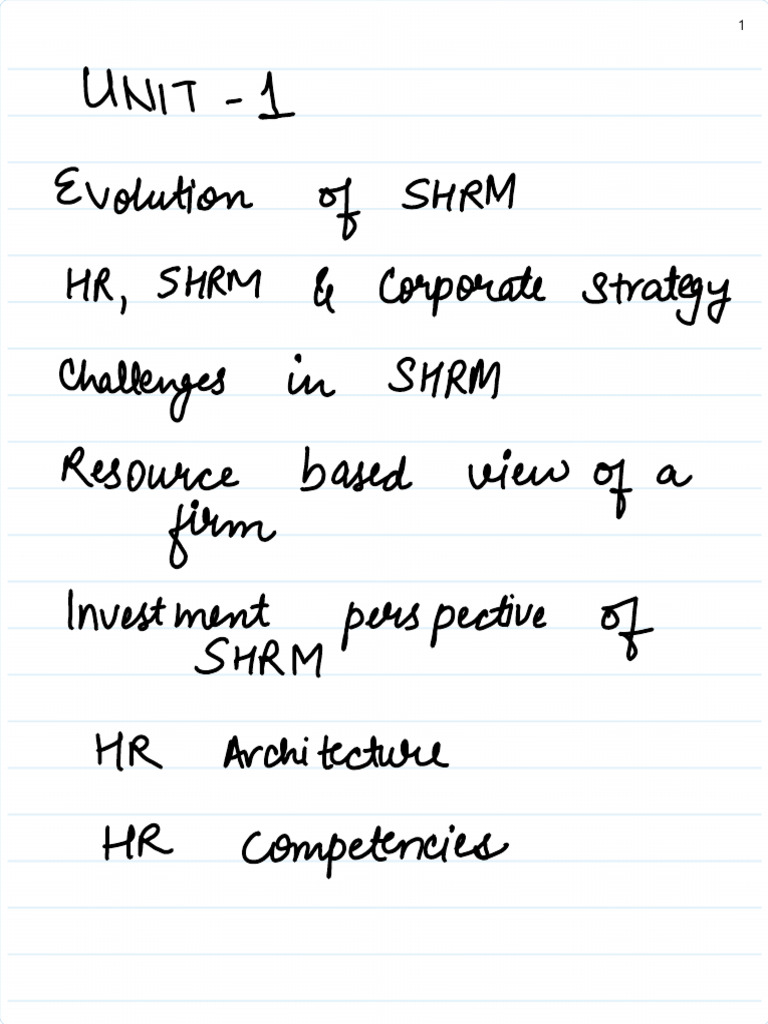 1
UNIT - 1
Evolution of SHRM
HR, SHRM & Corporate strategy
Challenges in SHRM
Resource based view of a
firm
Investment perspective of
SHRM
HR Architecture
HR Competencies